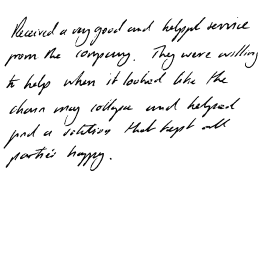 Received a very good and helpful service
from the company. They were willing
to help when it looked like the
chain may collapse and helped
find a solution that kept all
parties happy.